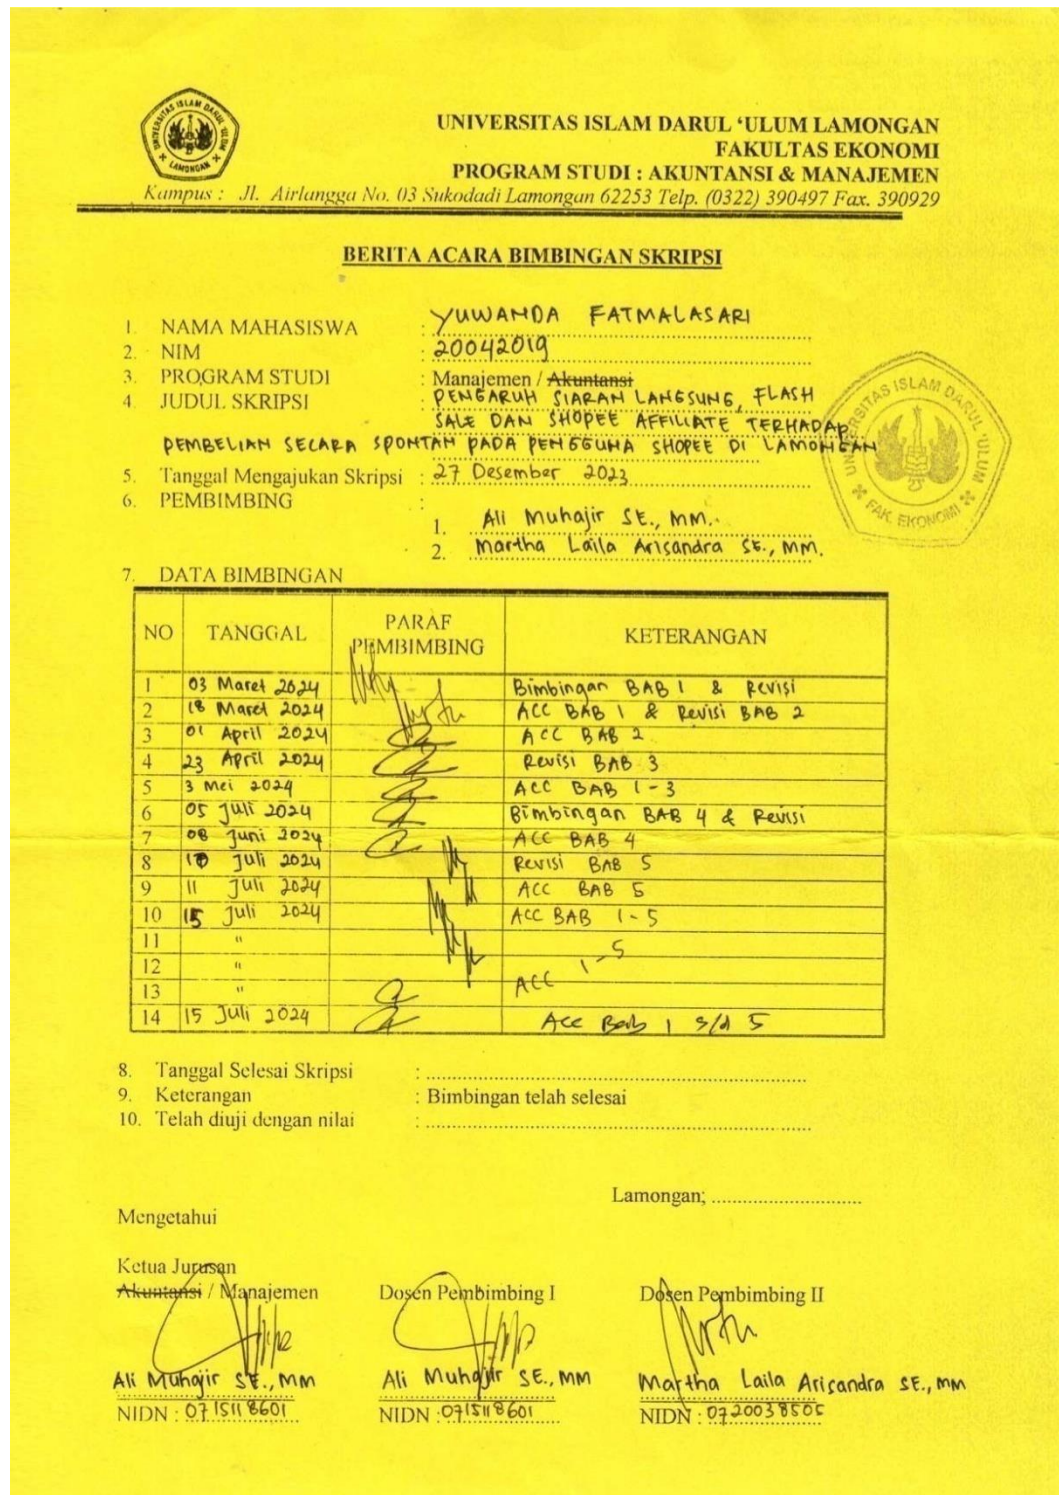 UNIVERSITAS ISLAM DARUL 'ULUM LAMONGAN
UNIVERSITAS ISLAM DARUL ‘ULUM LAMONGAN
FAKULTAS EKONOMI
PROGRAM STUDI : AKUNTANSI & MANAJEMEN
Kampus : Jl. Airlangga No. 03 Sukodadi Lamongan 62253 Telp. (0322) 390497 Fax. 390929
BERITA ACARA BIMBINGAN SKRIPSI
1. NAMA MAHASISWA : YUWANDA FATMALASARI
2. NIM : 20042019
3. PROGRAM STUDI : Manajemen / Akuntansi
4. JUDUL SKRIPSI : PENGARUH SIARAN LANGSUNG, FLASH
SALE DAN SHOPEE AFFILIATE TERHADAP
PEMBELIAN SECARA SPONTAN PADA PENGGUNA SHOPEE DI LAMONGAN
5. Tanggal Mengajukan Skripsi : 27 Desember 2023
6. PEMBIMBING :
1. Ali Muhajir SE., MM.
2. Martha Laila Arisandra SE., MM.
UNIVERSITAS ISLAM DARUL 'ULUM
FAK. EKONOMI
7. DATA BIMBINGAN
NO TANGGAL PARAF PEMBIMBING KETERANGAN
1 03 Maret 2024 Bimbingan BAB 1 & Revisi
2 18 Maret 2024 ACC BAB 1 & Revisi BAB 2
3 01 April 2024 ACC BAB 2
4 23 April 2024 Revisi BAB 3
5 3 Mei 2024 ACC BAB 1 - 3
6 05 Juli 2024 Bimbingan BAB 4 & Revisi
7 08 Juni 2024 ACC BAB 4
8 10 Juli 2024 Revisi BAB 5
9 11 Juli 2024 ACC BAB 5
10 15 Juli 2024 ACC BAB 1 - 5
11 "
12 "
13 " ACC 1 - 5
14 15 Juli 2024 Acc Bab 1 s/d 5
8. Tanggal Selesai Skripsi :
9. Keterangan : Bimbingan telah selesai
10. Telah diuji dengan nilai :
Lamongan;
Mengetahui
Ketua Jurusan
Akuntansi / Manajemen Dosen Pembimbing I Dosen Pembimbing II
Ali Muhajir SE., MM Ali Muhajir SE., MM Martha Laila Arisandra SE., MM
NIDN : 0715118601 NIDN : 0715118601 NIDN : 0720038505